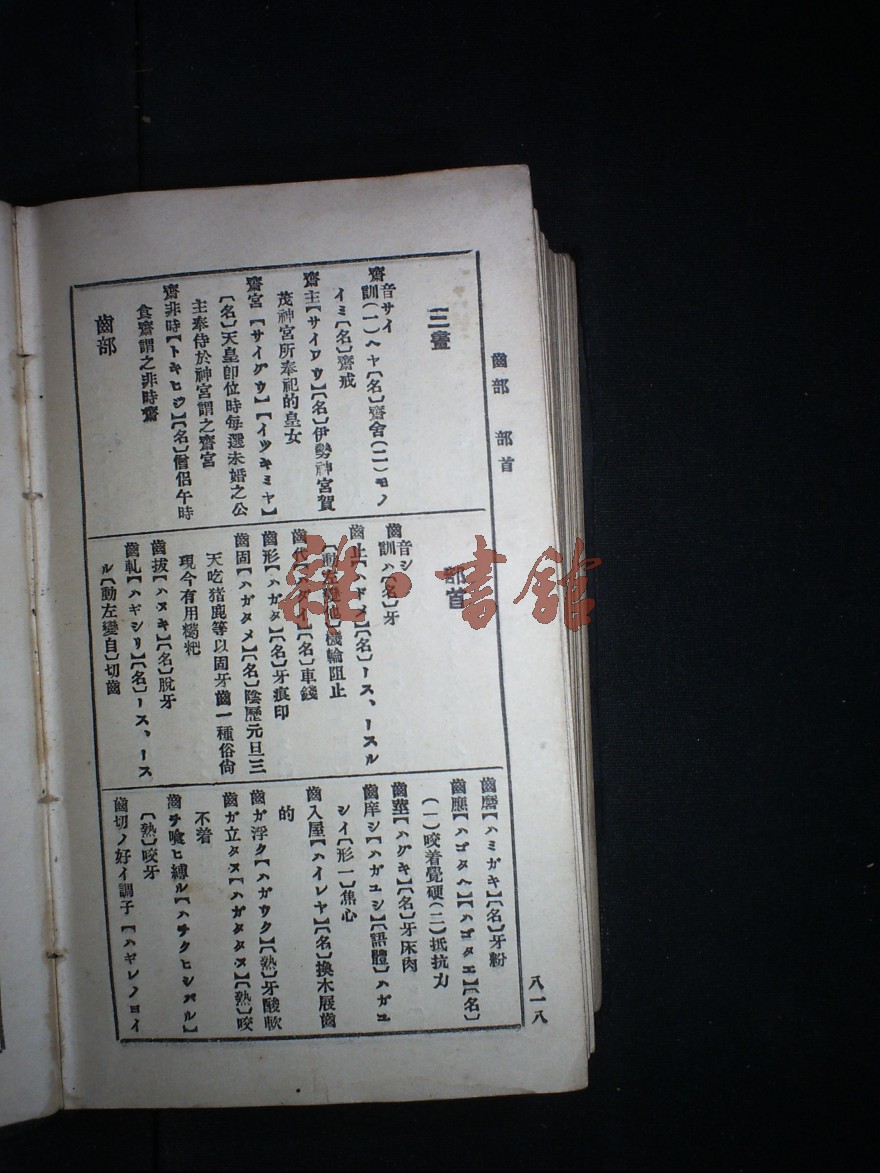 齒部 部首
三畫
齋音サイ
訓(一)ヘヤ【名】齋舍(二)モノ
イミ【名】齋戒
齋主【サイワウ】【名】伊勢神宮賀
茂神宮所奉祀的皇女
齋宮【サイグウ】【イツキミヤ】
【名】天皇卽位時每選未婚之公
主奉侍於神宮謂之齋宮
齋非時【トキヒジ】【名】僧侶午時
食齋謂之非時齋
齒部
部首
齒音シ
訓ハ【名】牙
齒止【ハドメ】【名】ース、ースル
【動左變他】機輪阻止
齒代【ハダイ】【名】車錢
齒形【ハガタ】【名】牙痕印
齒固【ハガタメ】【名】陰歷元旦三
天吃猪鹿等以固牙齒一種俗尙
現今有用糯粑
齒拔【ハヌキ】【名】脫牙
齒軋【ハギシリ】【名】ース、ース
ル【動左變自】切齒
齒磨【ハミガキ】【名】牙粉
齒應【ハゴタヘ】【ハゴタエ】【名】
(一)咬着覺硬(二)抵抗力
齒莖【ハグキ】【名】牙床肉
齒痒シ【ハガユシ】【語體】ハガユ
シイ【形一】焦心
齒入屋【ハイレヤ】【名】換木屐齒
的
齒ガ浮ク【ハガウク】【熟】牙酸軟
齒ガ立タヌ【ハガタタヌ】【熟】咬
不着
齒ヲ喰ヒ縛ル【ハヲクヒシバル】
【熟】咬牙
齒切ノ好イ調子【ハギレノヨイ
八一八
雜·書館